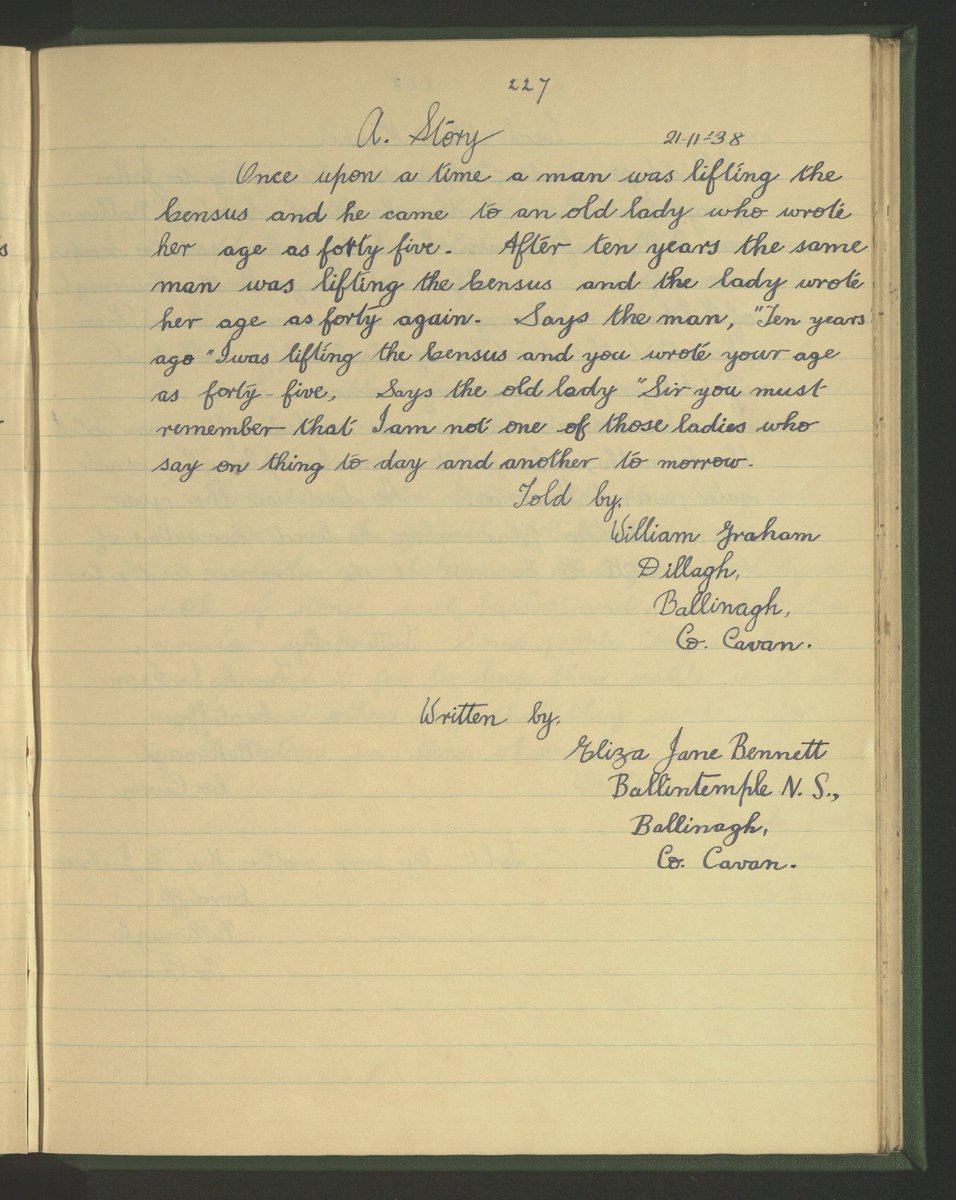 227
A. Story 21-11-'38
Once upon a time a man was lifting the
census and he came to an old lady who wrote
her age as forty five. After ten years the same
man was lifting the census and the lady wrote
her age as forty again. Says the man, "Ten years
ago "I was lifting the census and you wrote your age
as forty-five, Says the old lady "Sir you must
remember that I am not one of those ladies who
say on thing to day and another to morrow.
Told by.
William Graham
Dillagh,
Ballinagh,
Co. Cavan.
Written by.
Eliza Jane Bennett
Ballintemple N. S.,
Ballinagh,
Co. Cavan.